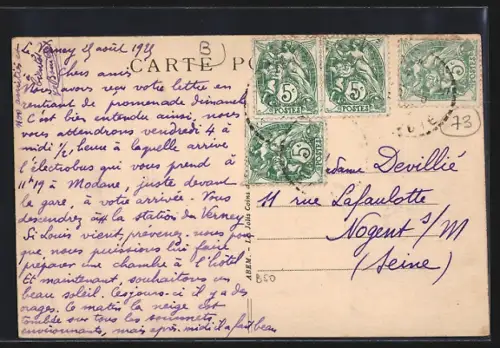 Le Verney 25 août 1925
Chers amis
CARTE PO
Nous avons reçu votre lettre en
rentrant de promenade dimanche
C'est bien entendu ainsi, nous
vous attendrons vendredi 4 à
midi ½, heure à laquelle arrive
l'électrobus qui vous prend à
11h19 à Modane, juste devant
la gare, à votre arrivée. Vous
descendrez à la station du Verney
Si Louis vient, prévenez-nous
que nous puissions lui faire
préparer une chambre à l'hôtel
Et maintenant, souhaitons un
beau soleil. Ces jours-ci il y a des
orages. Ce matin la neige est
tombée sur tous les sommets
environnants, mais après-midi il a fait beau
Nos amitiés
B
5c
POSTES
5c
POSTES
5c
5c
73
Madame Devillié
11 rue Lafaulotte
Nogent s/M
(Seine)
B60
ABEM. - Les Jolis Coins